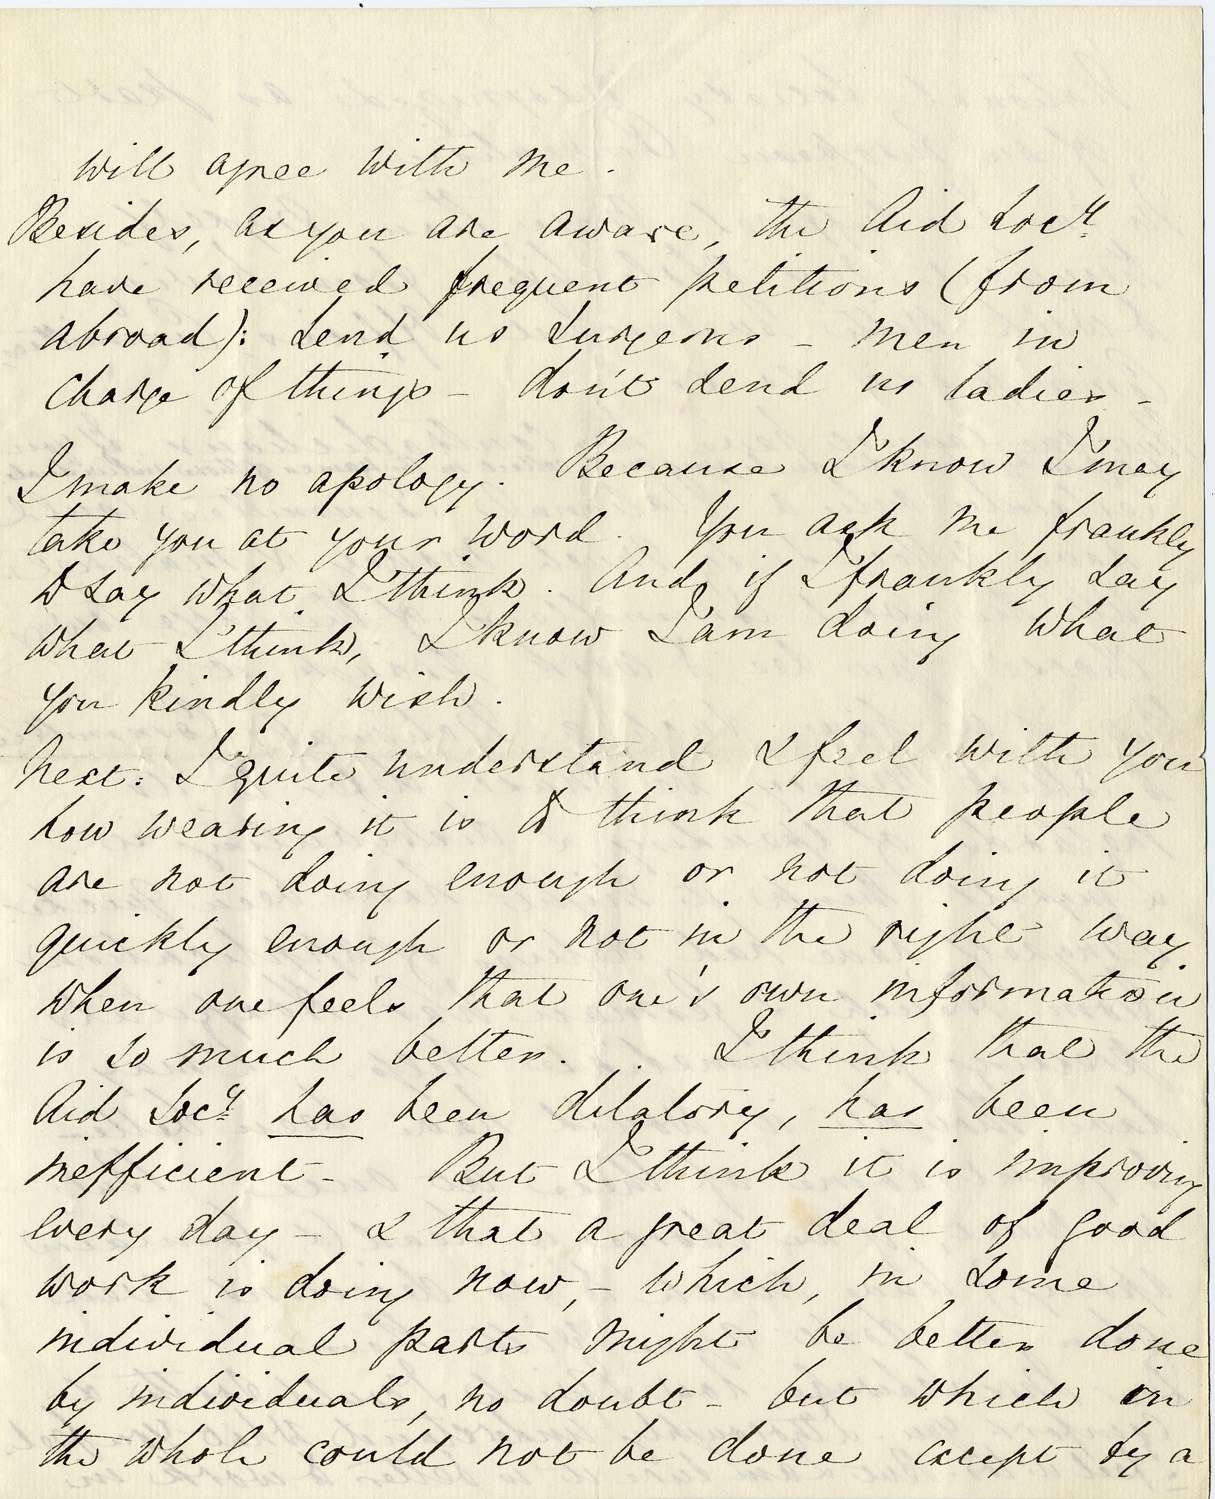 will agree with me.
Besides, as you are aware, the Aid Socy
have received frequent petitions (from
abroad): send us Surgeons - men in
charge of things - don't send us ladies -
I make no apology. Because I know I may
take you at your word. You ask me frankly
to say what I think. And, if I frankly say
what I think, I know I am doing what
you kindly wish.
Next: I quite understand & feel with you
how wearing it is to think that people
are not doing enough or not doing it
quickly enough or not in the right way
when one feels that one's own information
is so much better. I think that the
Aid Socy has been dilatory, has been
inefficient - But I think it is improving
every day - & that a great deal of good
work is doing now, - which, in some
individual parts might be better done
by individuals, no doubt - but which in
the whole could not be done except by a